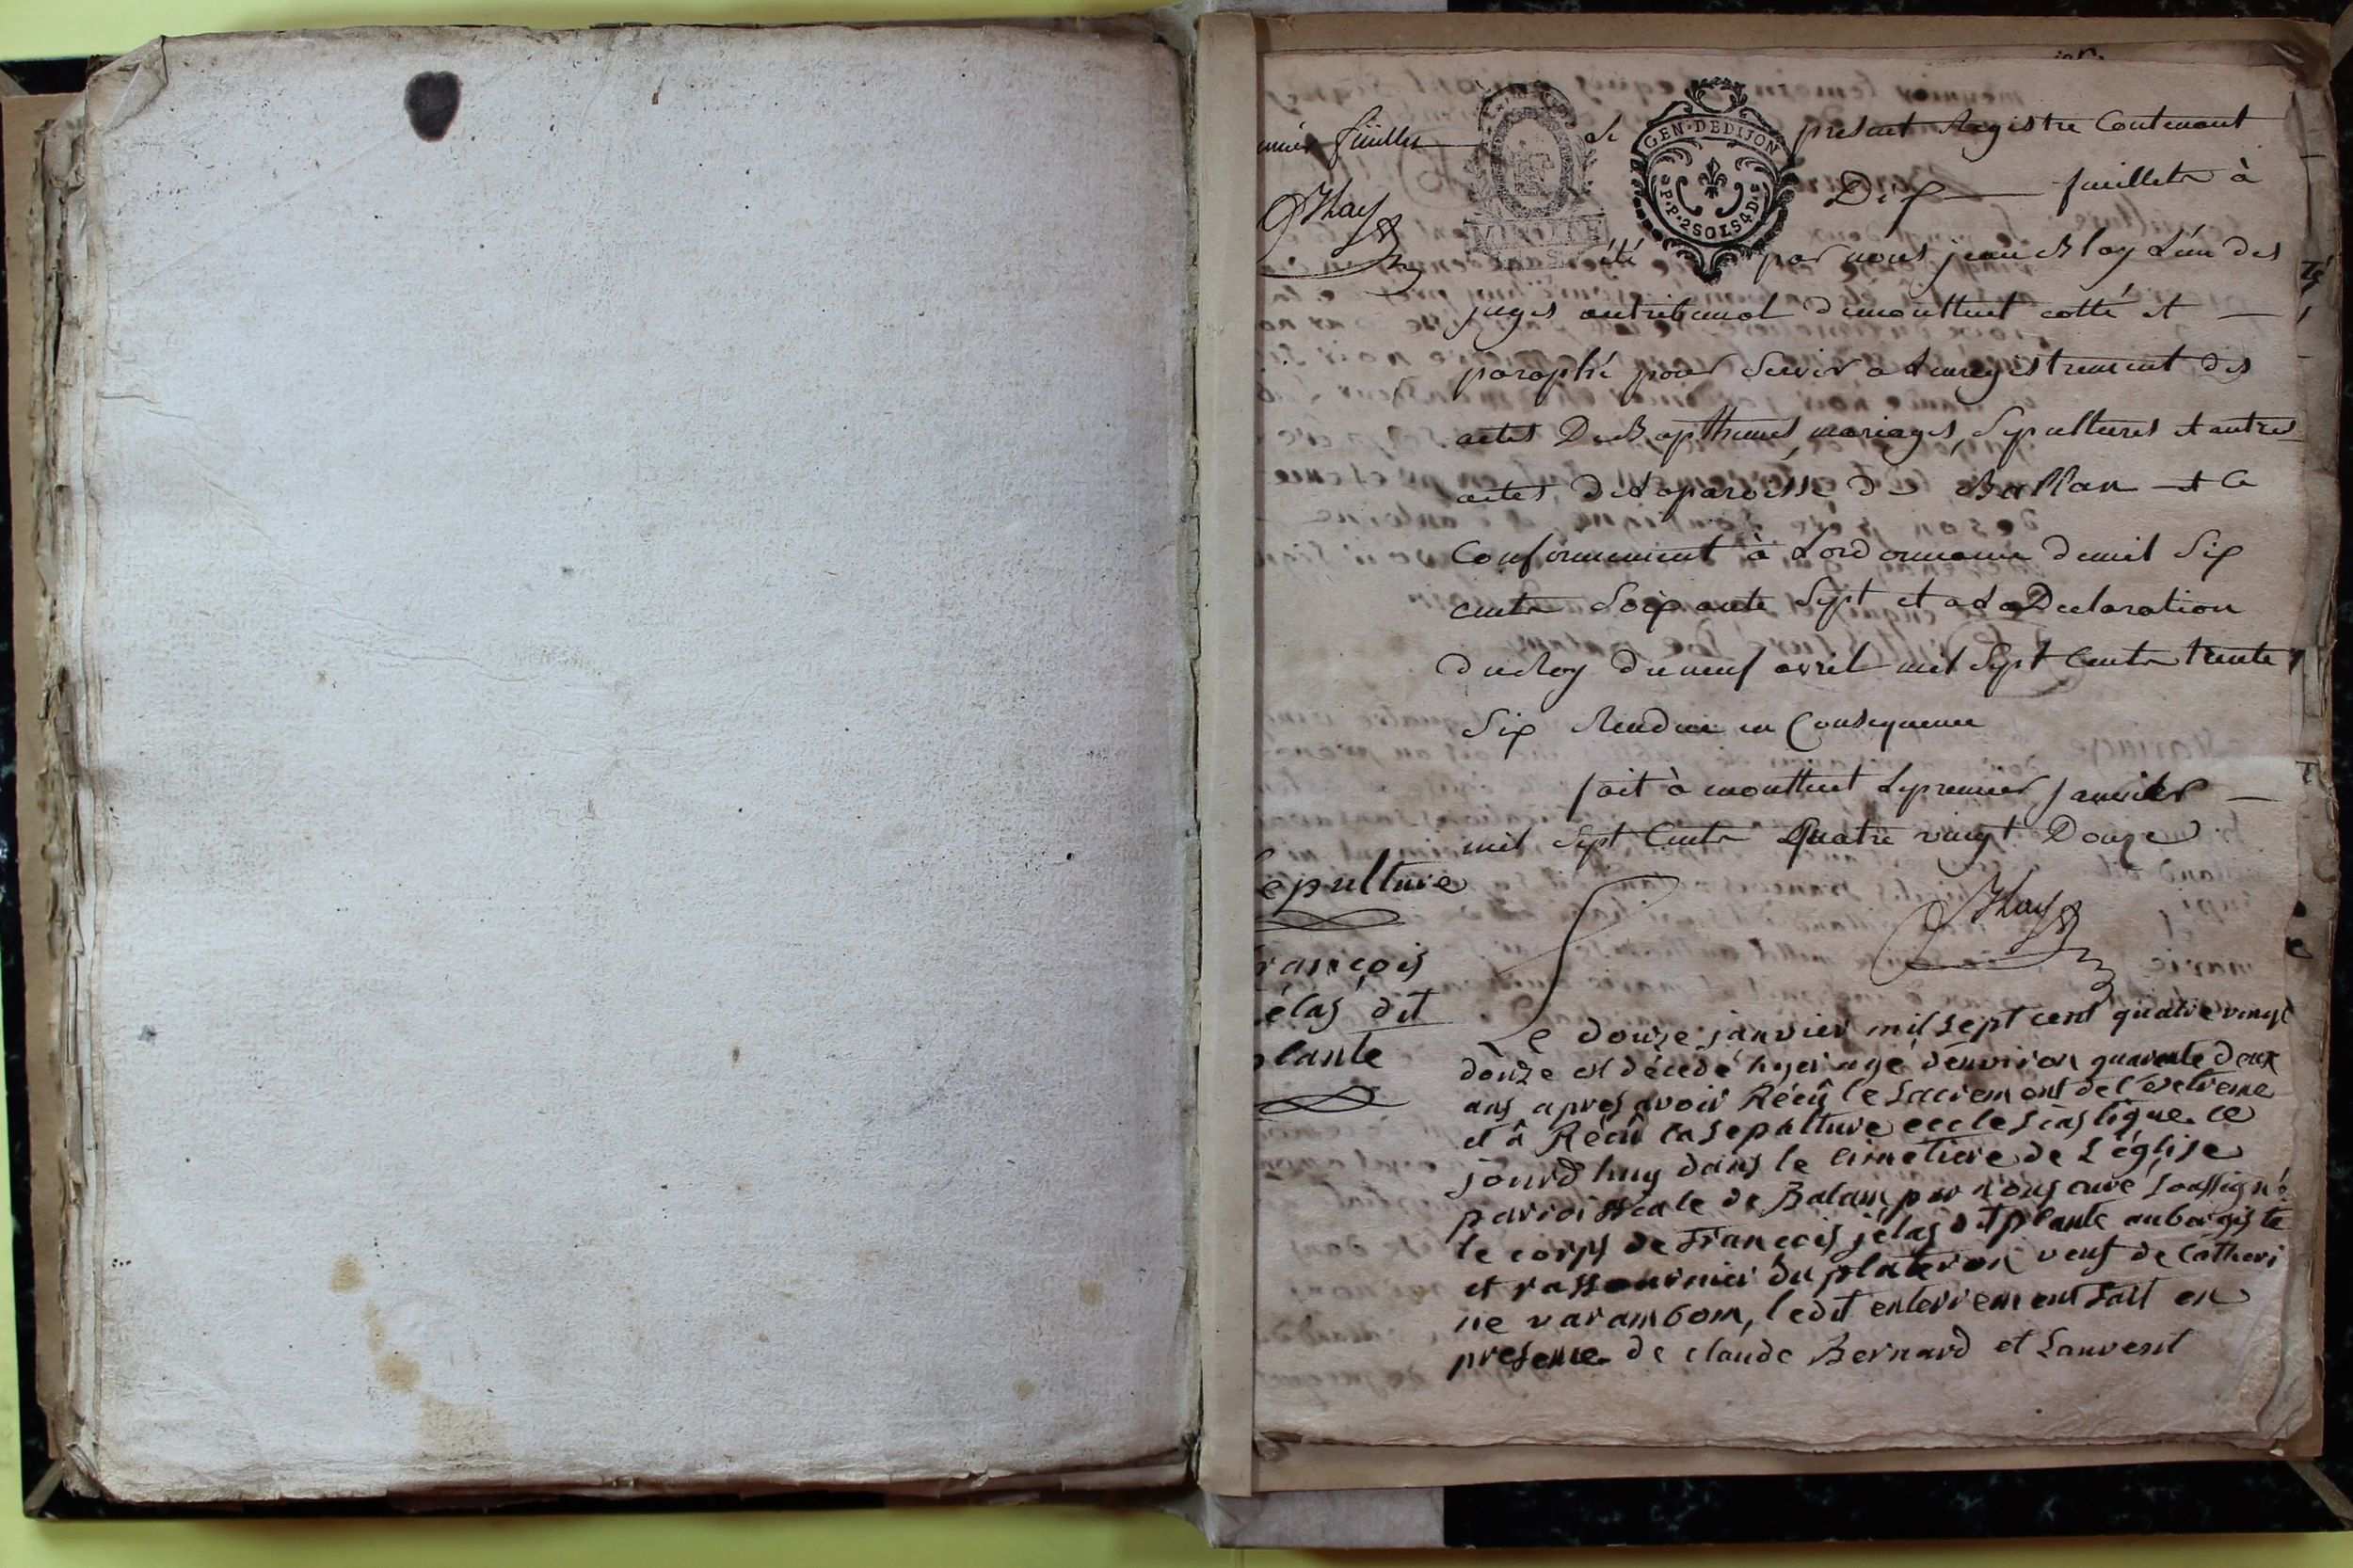 feuillet
GEN·DEDIJON
P·P·2SOLS4D·
Le present Registre Contenant
Dix feuillets à
été par nous jean Blay L'un des
juges autribunal demontluel cotté et
paraphé pour Servir a Lenregistrement des
actes DeBapthemes, mariages, Sepultures et autres
actes deLaparoisse de Ballan et Ce
Conformement à Lordonnance demil Six
cents Soixante Sept et a La Declaration
du Roy du neuf avril mil Sept Cents trente
Six Rendue en Consequence
fait à montluel Lepremier Janvier
mil Sept Cents Quatre vingt Douze
Blay
epulture
rançois
élas dit
plante
Le douze janvier mil sept cent quatre vingt
douze est décedé hyer agé d'environ quarante deux
ans apres avoir Récû le sacrement de l'extreme
et à Récû la sepulture ecclesiastique ce
jourd huy dans le cimetiere de L'église
paroissiale de Balan, par nous curé soussigné
le corps de François jélas dit plante aubergiste
et du plateron veuf de Catheri
ne varambom, ledit enterrement fait en
presence de claude Bernard et Laurent